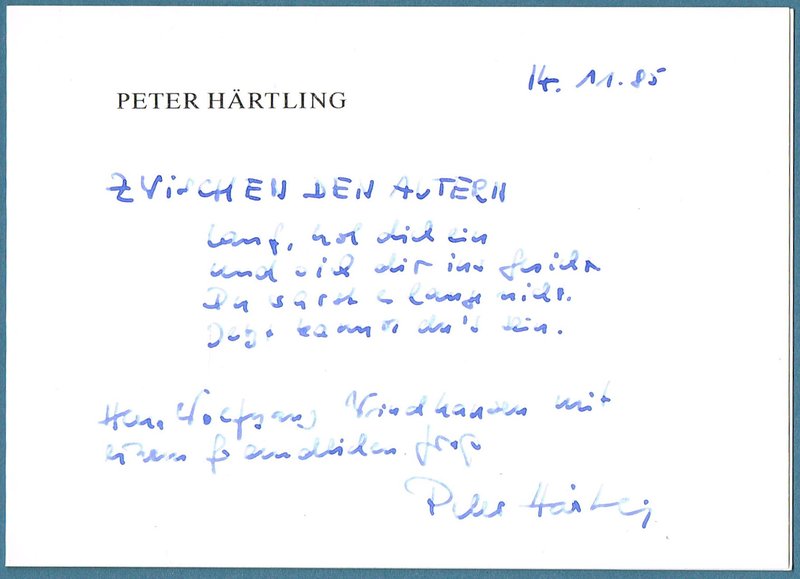 PETER HÄRTLING
14. 11. 85
ZWISCHEN DEN ALTERN
Lauf, hol dich ein
und sieh dir ins Gesicht.
Du warst es lange nicht.
Jetzt kannst du's sein.
Herrn Wolfgang mit
einem freundlichen Gruß
Peter Härtling